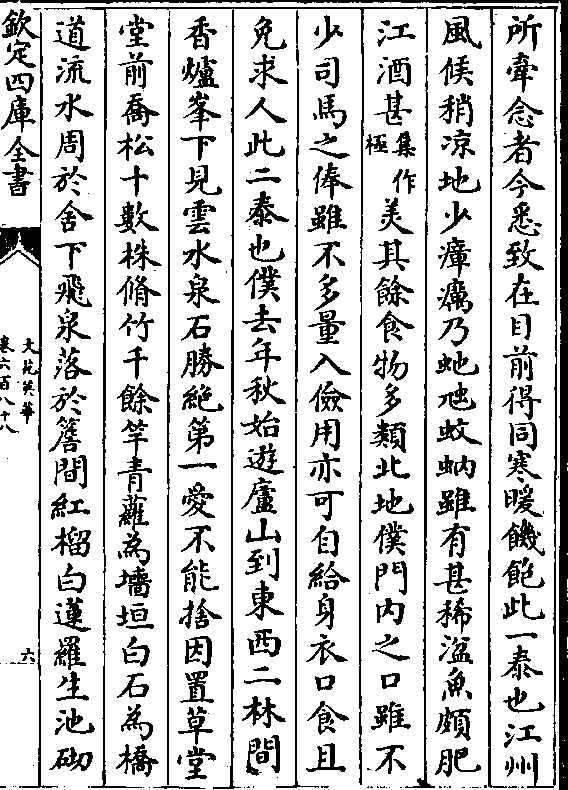 所牽念者今悉致在目前得同寒暖饑飽此一泰也江州
風候稍凉地少瘴癘乃虵虺蚊蚋雖有甚稀湓魚頗肥
江酒甚集作極美其餘食物多類北地僕門内之口雖不
少司馬之俸雖不多量入儉用亦可自給身衣口食且
免求人此二泰也僕去年秋始遊廬山到東西二林間
香爐峯下見雲水泉石勝絶第一愛不能捨因置草堂
堂前喬松十數株脩竹千餘竿青蘿為墻垣白石為橋
道流水周於舍下飛泉落於簷間紅榴白蓮羅生池砌
欽定四庫全書
文苑英華
卷六百八十八
六